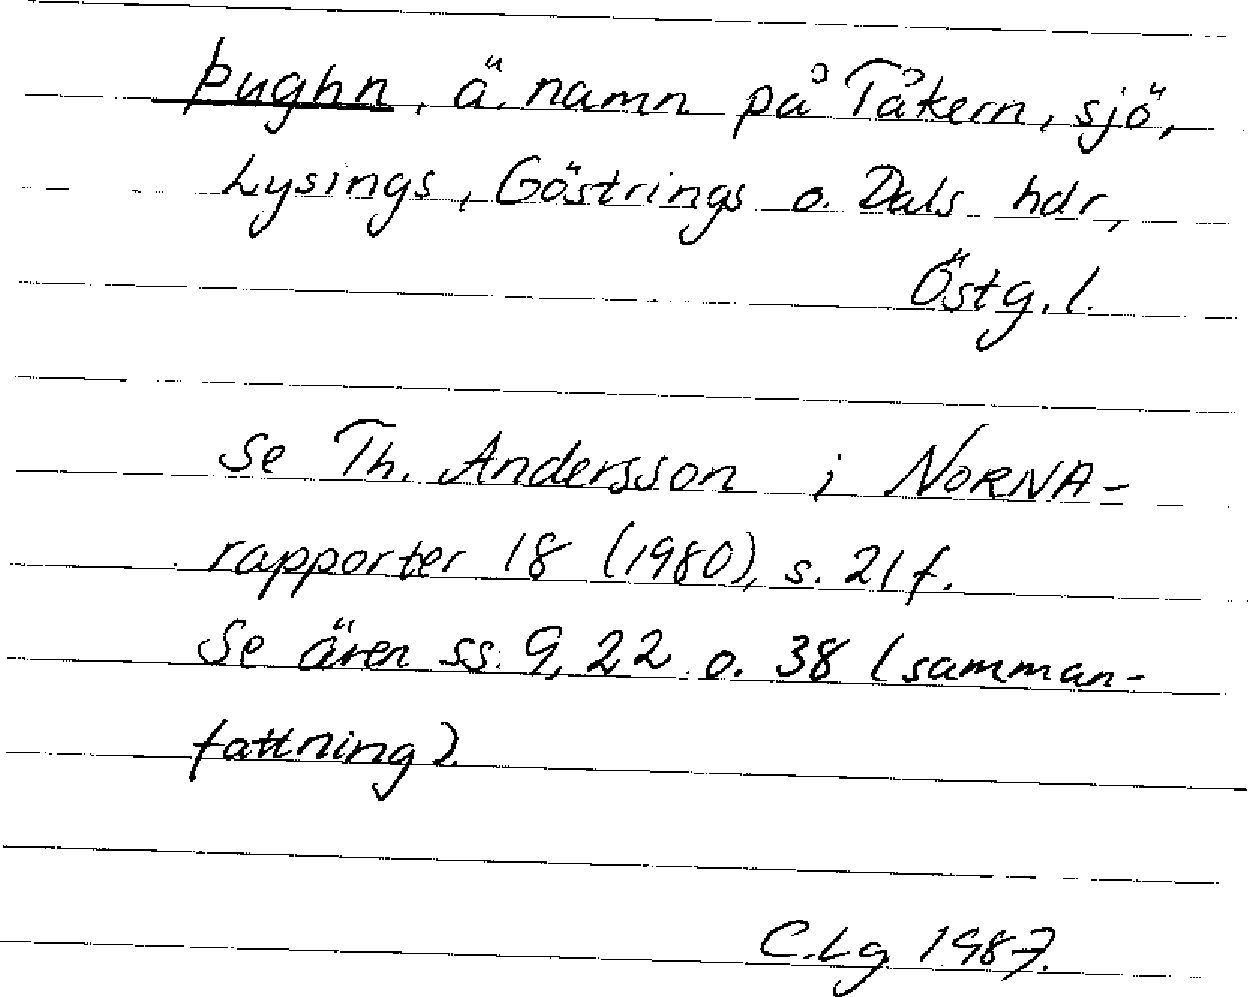 Þughn, ä. namn på Tåkern, sjö,
Lysings, Göstrings o. Dals hdr,
Östg. l.
Se Th. Andersson i NORNA-
rapporter 18 (1980), s. 21 f.
Se även ss. 9, 22 o. 38 (samman-
fattning)
C.Lg 1987.